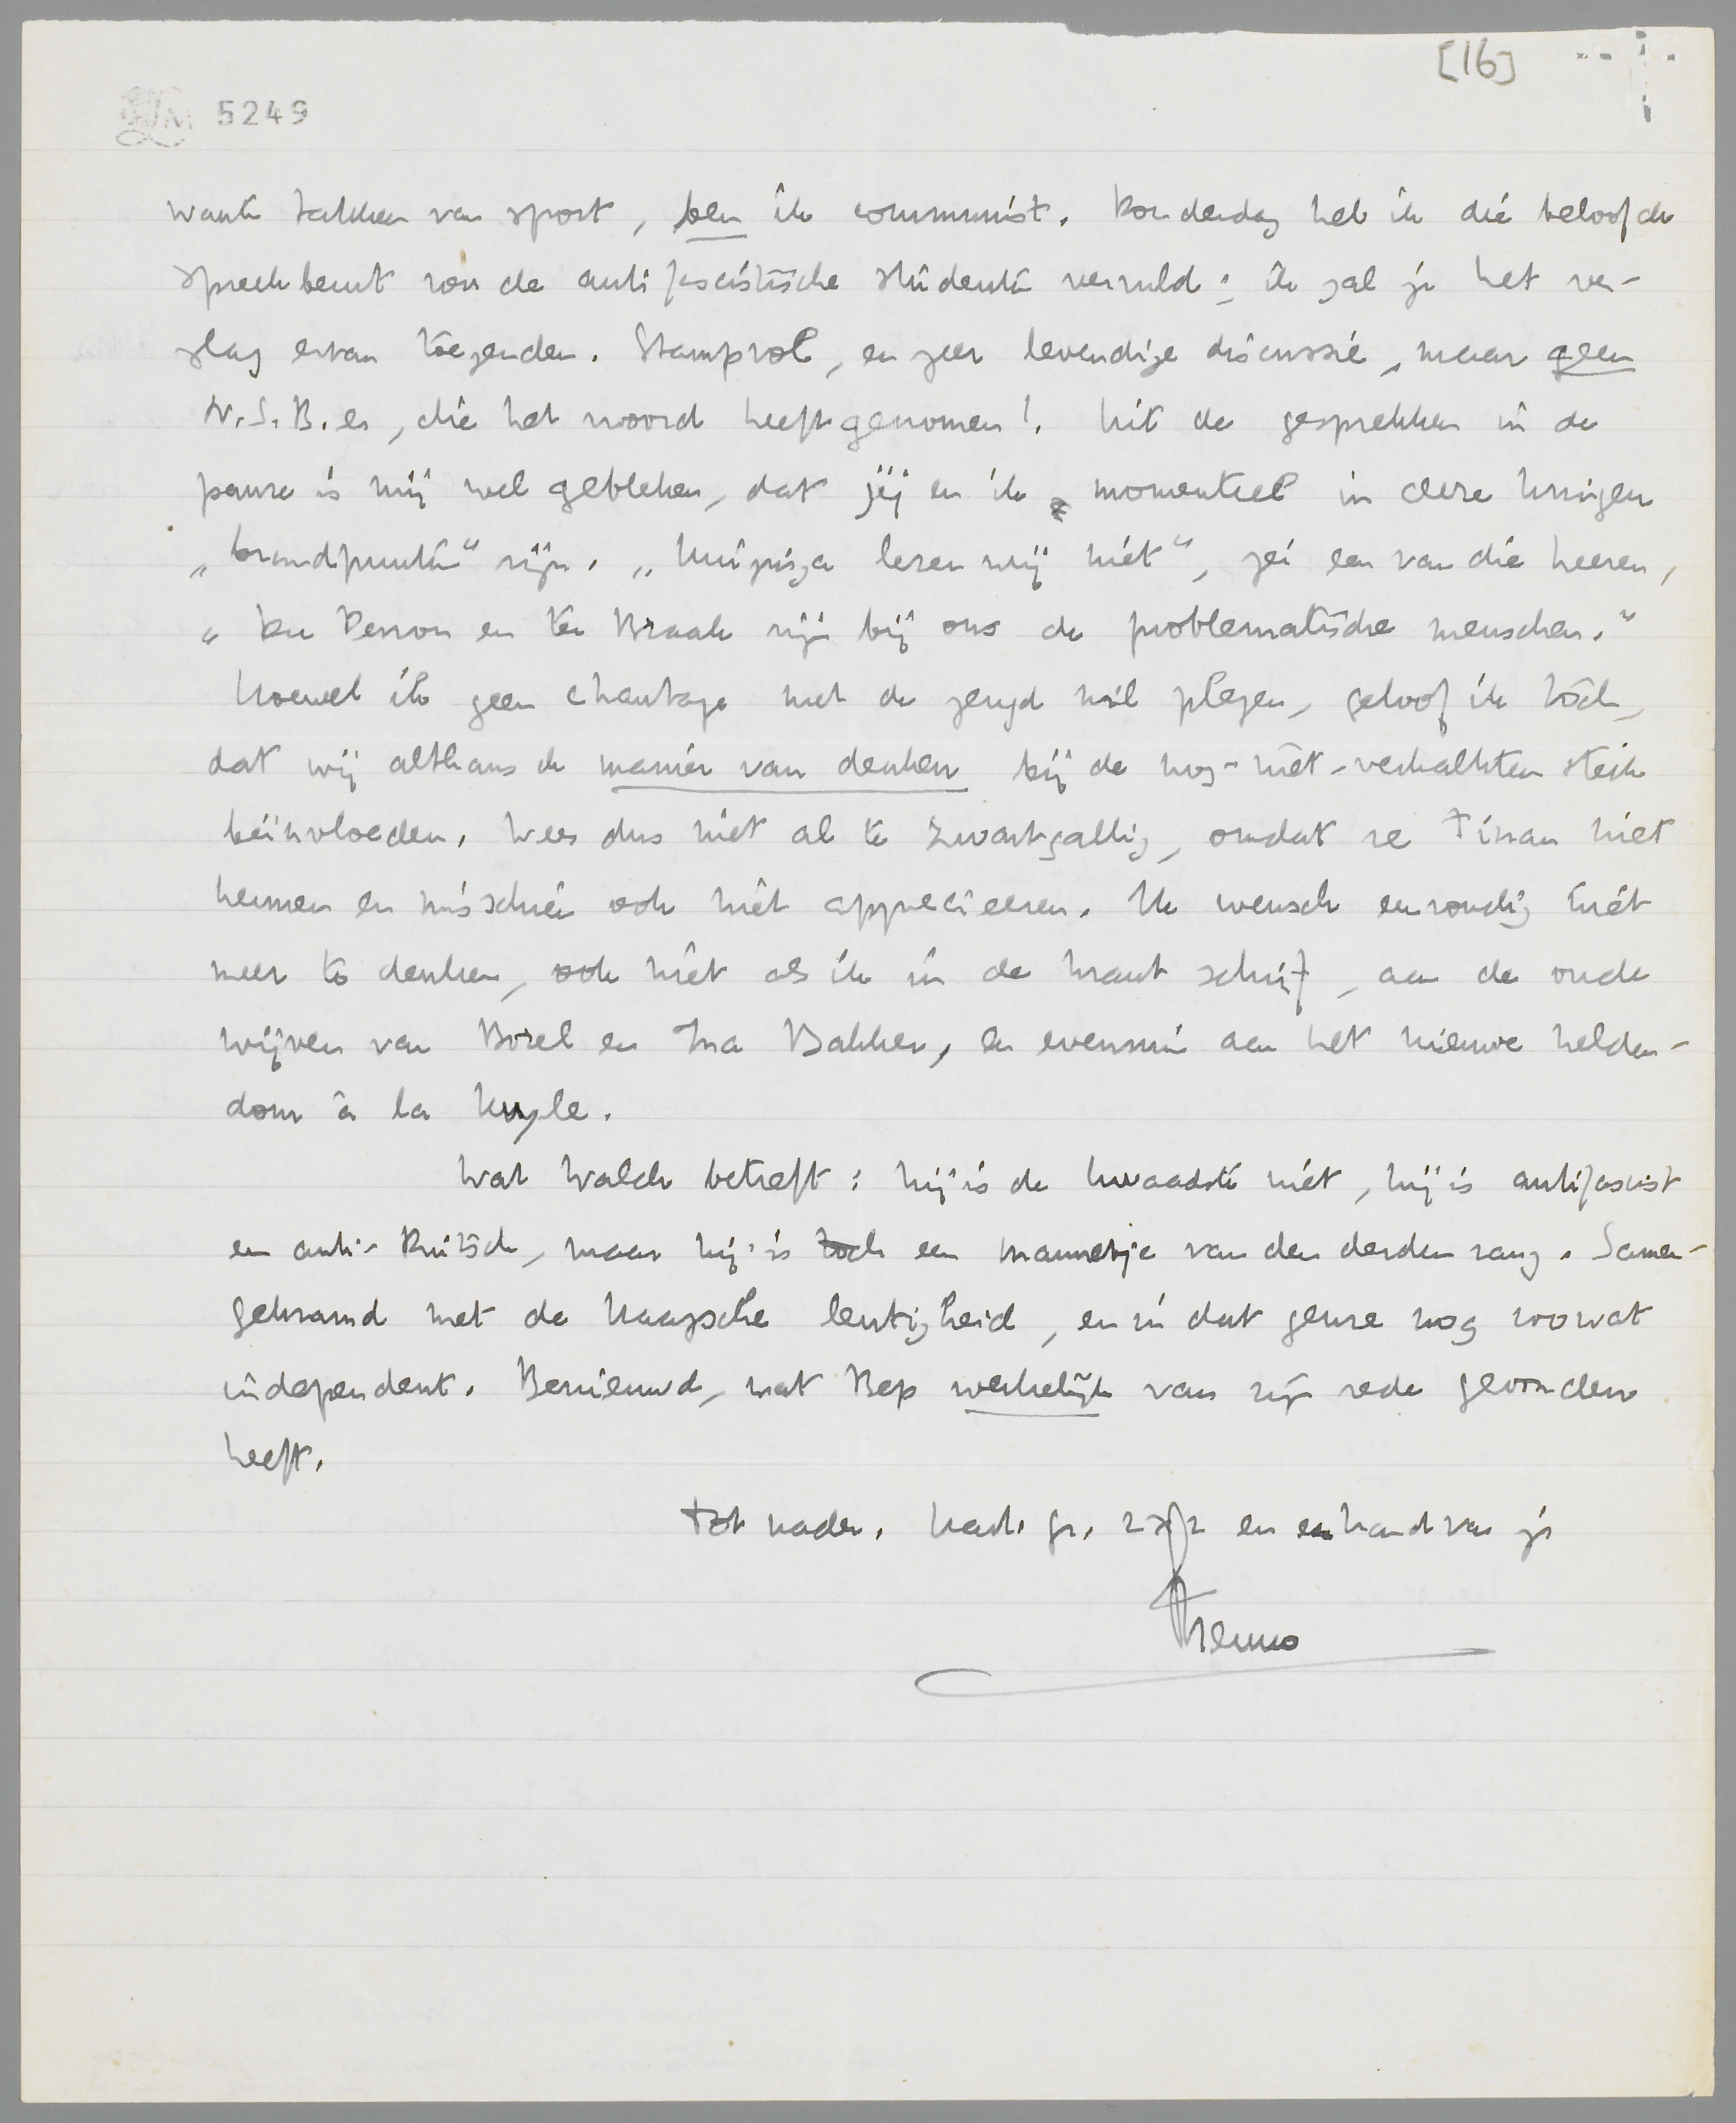 [16]
5249
wante takken van sport, ben ik communist. Donderdag heb ik die beloofde
spreekbeurt voor de antifascistische studenten vervuld; ik zal je het ver-
slag ervan toezenden. Stampvol, en zeer levendige discussie, maar geen
N.S.B.er, die het woord heeft genomen! Uit de gesprekken in de
pauze is mij wel gebleken, dat jij en ik momenteel in deze kringen
„brandpunten" zijn. „Huizinga lezen wij niet", zei een van die heeren,
„Du Perron en Ter Braak zijn bij ons de problematische menschen."
Hoewel ik geen chantage met de jeugd wil plegen, geloof ik toch,
dat wij althans de manier van denken bij de nog-niet-verkalkten sterk
beïnvloeden. Wees dus niet al te zwartgallig, omdat ze Tissan niet
kennen en misschien ook niet apprecieeren. Ik wensch eenvoudig niet
meer te denken, ook niet als ik in de krant schrijf, aan de oude
wijven van Borel en Ina Bakker, en evenmin aan het nieuwe helden-
dom à la Kuyle.
Wat Walch betreft: hij is de kwaadste niet, hij is antifascist
en anti-Duitsch, maar hij is toch een mannetje van den derden rang. Samen-
gekramd met de Haagsche leutigheid, en in dat genre nog zoowat
independent. Benieuwd, wat Bep werkelijk van zijn rede gevonden
heeft.
Tot nader. Hart. gr. 2 x 2 en een hand van je
Menno